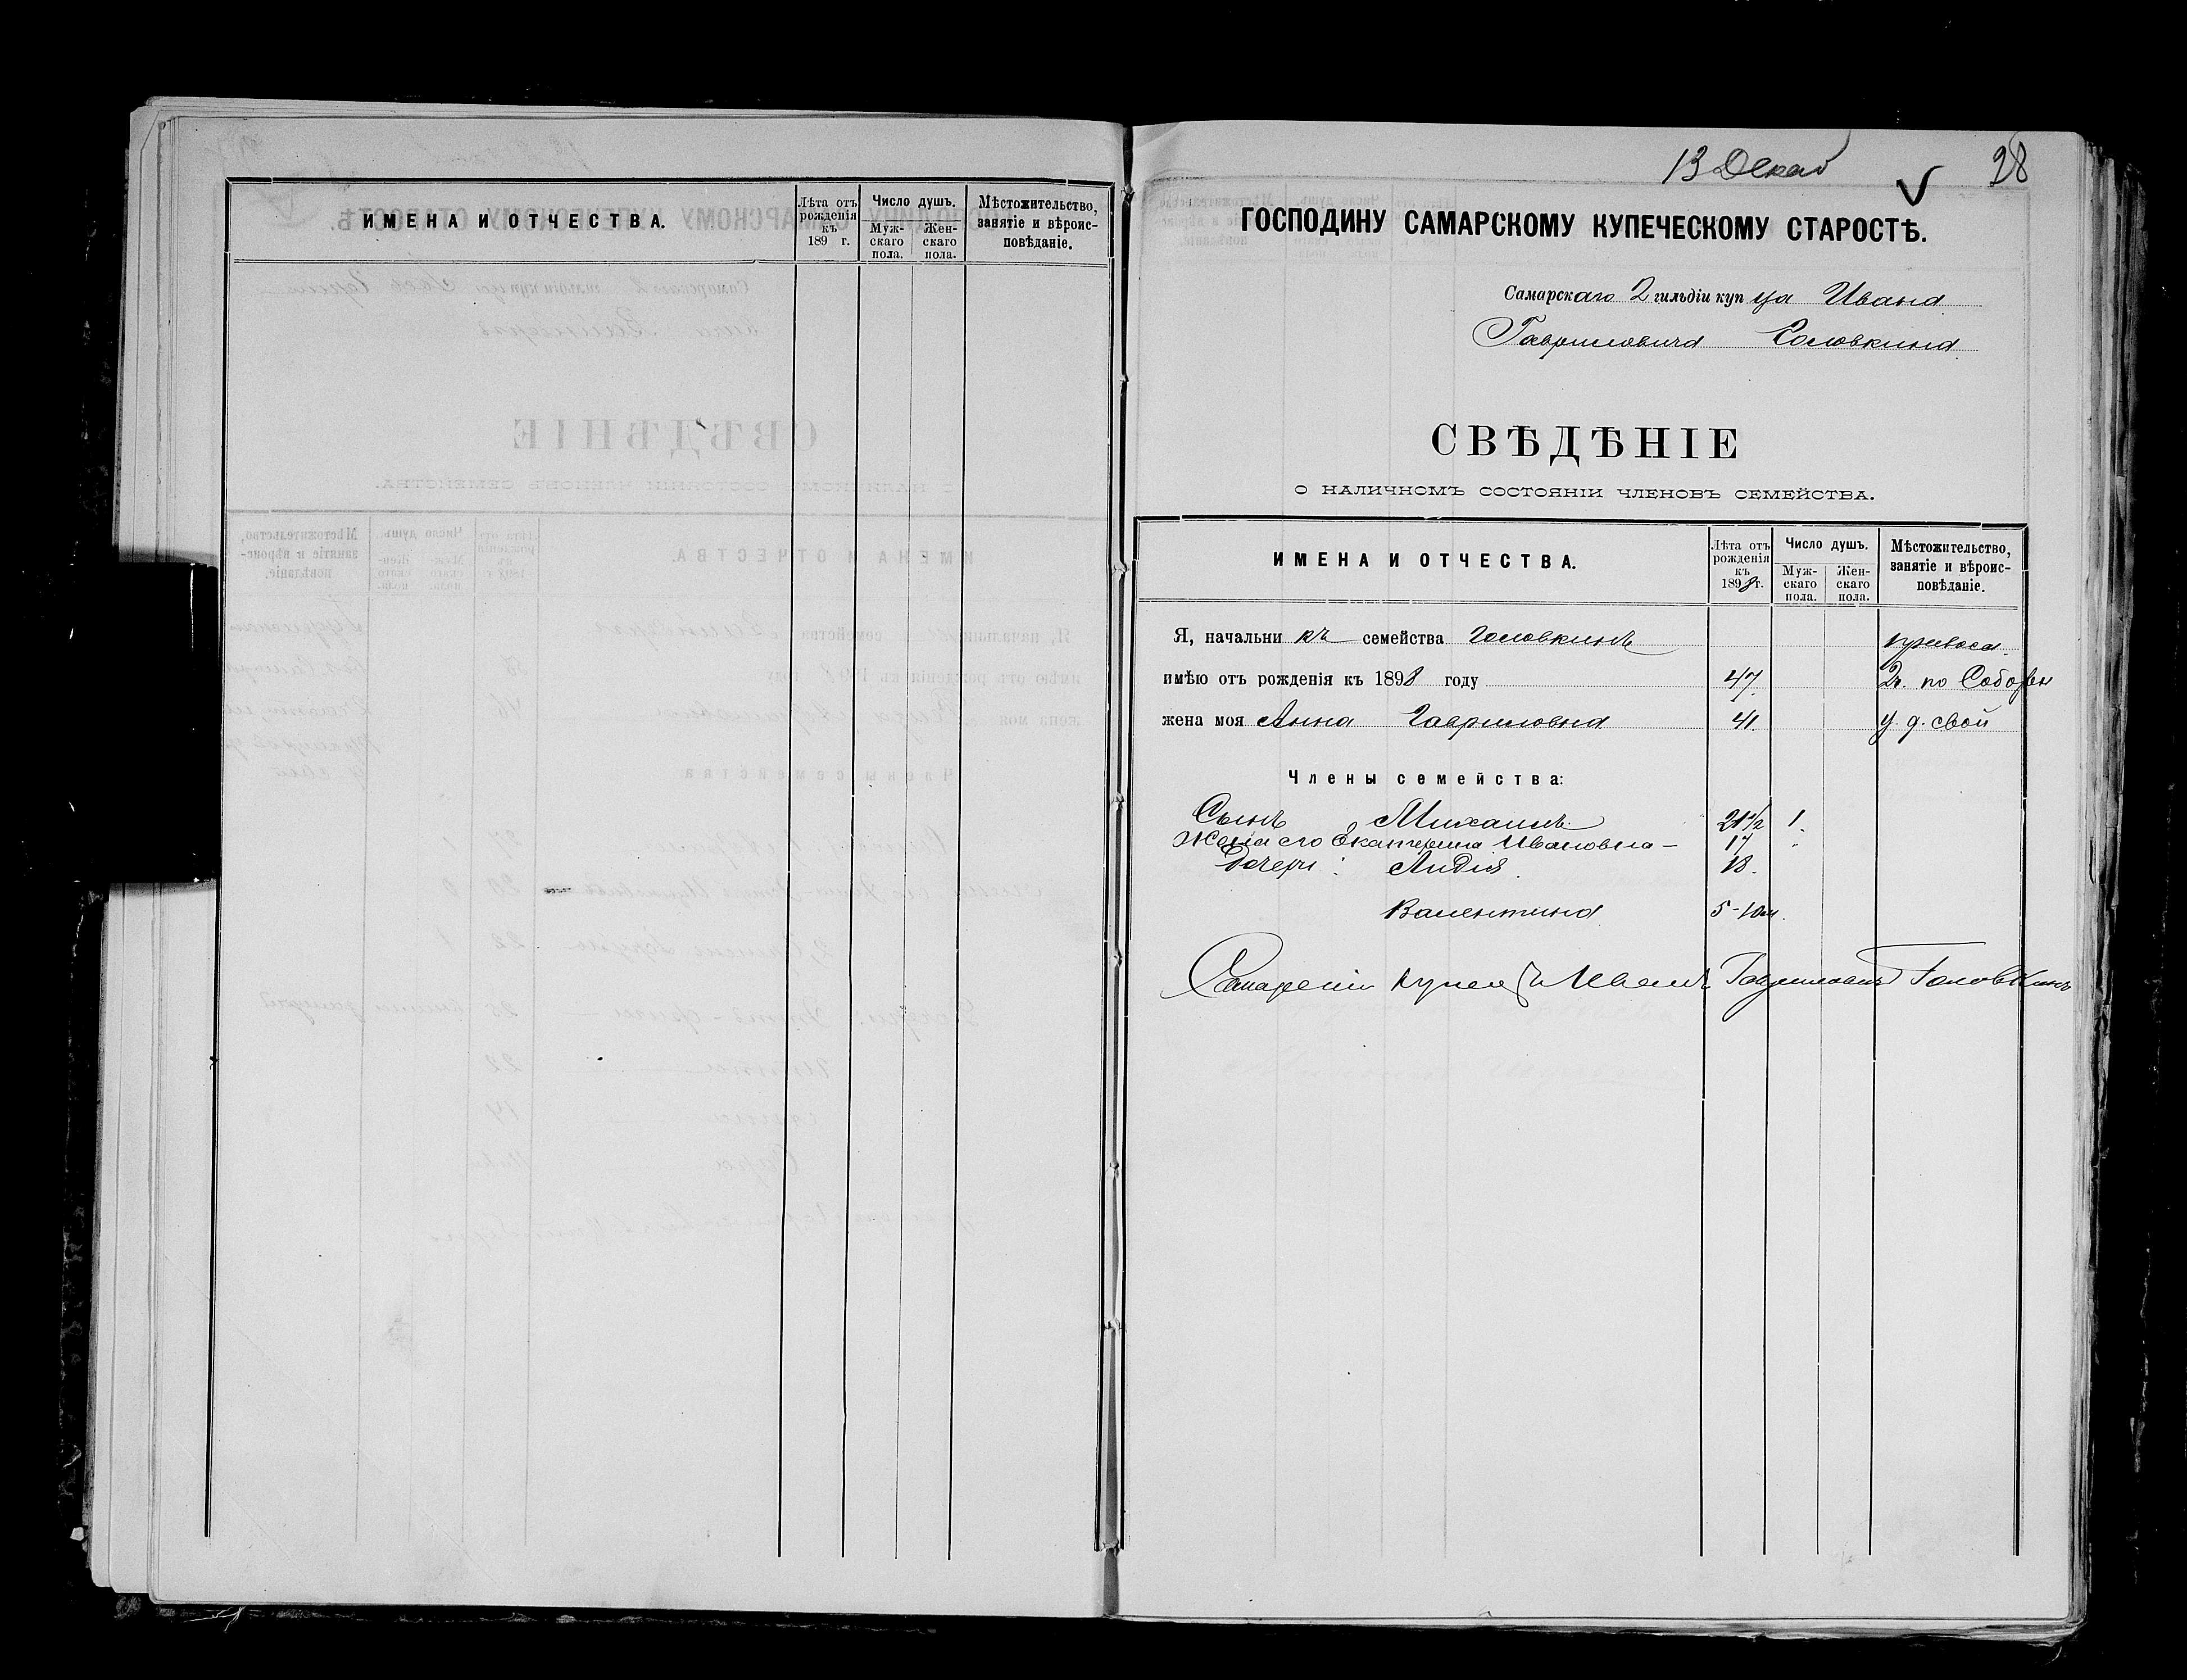 ИМЕНА И ОТЧЕСТВА.
Лѣта отъ рожденія къ 189 г.
Число душъ.
Мужскаго пола.
Женскаго пола.
Мѣстожительство, занятіе и вѣроисповѣданіе.
13 Декаб
28
ГОСПОДИНУ САМАРСКОМУ КУПЕЧЕСКОМУ СТАРОСТѢ.
Самарскаго 2 гильдіи купца Ивана
Гавриловича Головкина
СВѢДѢНІЕ
О НАЛИЧНОМЪ СОСТОЯНІИ ЧЛЕНОВЪ СЕМЕЙСТВА.
ИМЕНА И ОТЧЕСТВА.
Лѣта отъ рожденія къ 1898 г.
Число душъ.
Мужскаго пола.
Женскаго пола.
Мѣстожительство, занятіе и вѣроисповѣданіе.
Я, начальникъ семейства Головкинъ
имѣю отъ рожденія къ 1898 году 47. 2ч. по Соборн
жена моя Анна Гавриловна 41. у. д. свой
Члены семейства:
Сынъ Михаилъ 21 1/2 1.
Жена его Екатерина Ивановна — 17
Дочери: Лидія. 18.
Валентина 5-10м.
Самарскій купецъ Иванъ Гавриловичъ Головкинъ